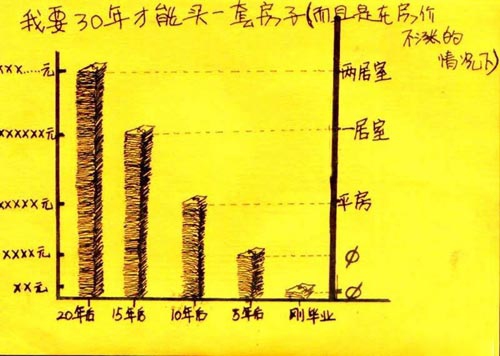 我要30年才能买一套房子(而且是在房价
不涨的
情况下)
xxx......元
两居室
xxxxxx元
一居室
xxxxx元
平房
xxxx元
ø
xx元
ø
20年后 15年后 10年后 5年后 刚毕业